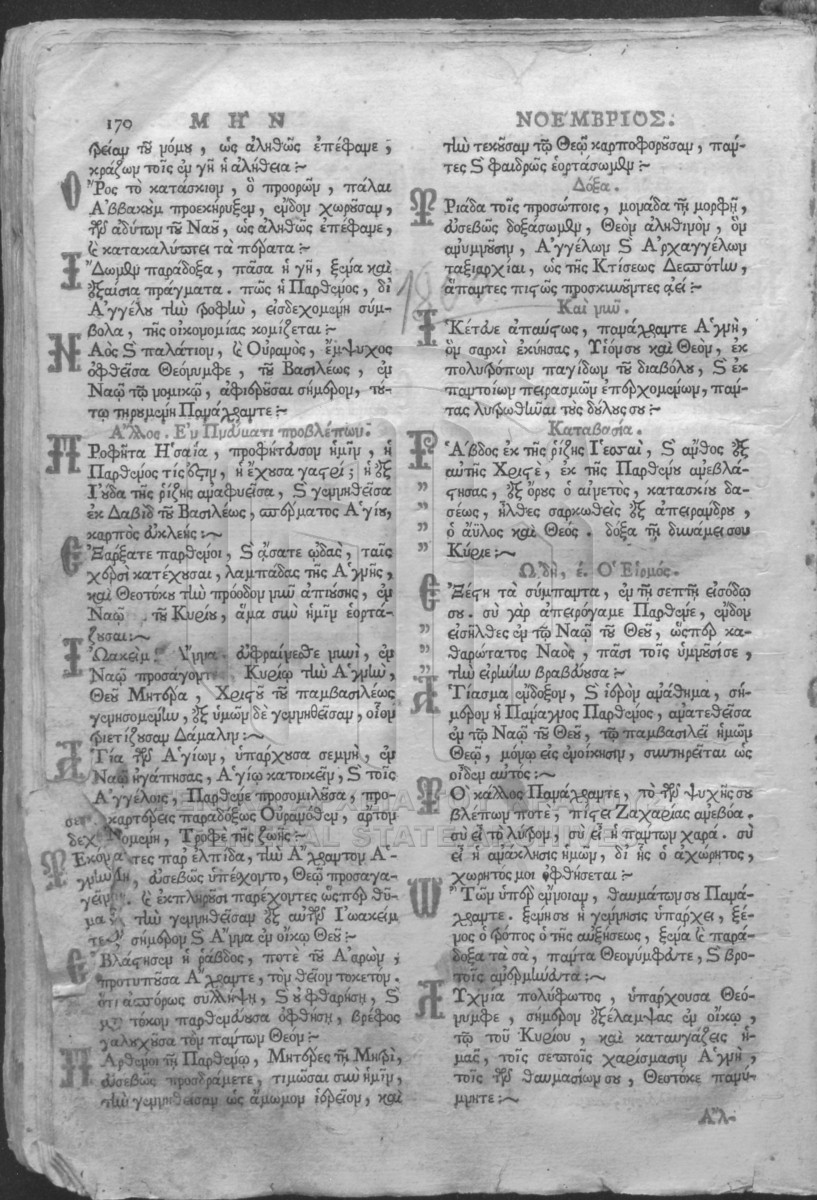 170 ΜΗ Ν
βείαν τοῦ νόμου, ὡς ἀληθῶς ἐπέφανε,
κράζων τοῖς ἐν γῇ ἡ ἀλήθεια:
Ὄρος τὸ κατάσκιον, ὃ προορῶν, πάλαι
Ἀββακοὺμ προεκήρυξεν, ἔνδον χωροῦσαν,
τῶν ἀδύτων τοῦ Ναοῦ, ὡς ἀληθῶς ἐπέφανε,
καὶ κατακαλύπτει τὰ πέρατα:
Ἴδωμεν παράδοξα, πᾶσα ἡ γῆ, ξένα καὶ
ἐξαίσια πράγματα. πῶς ἡ Παρθένος, δι
Ἀγγέλου τὴν τροφὴν, εἰσδεχομένη σύμ-
βολα, τῆς οἰκονομίας κομίζεται:
Ναὸς καὶ παλάτιον, καὶ Οὐρανὸς, ἔμψυχος
ὀφθεῖσα Θεόνυμφε, τοῦ Βασιλέως, ἐν
Ναῷ τῷ νομικῷ, ἀφιεροῦσαι σήμερον, τού-
τῳ τηρουμένη Πανάχραντε:
Ἄλλος. Ἐν Πνεύματι προβλέπων.
Προφῆτα Ἡσαΐα, προφήτευσον ἡμῖν, ἡ
Παρθένος τίς ἐστιν, ἡ ἔχουσα γαστρί; ἡ ἐξ
Ἰούδα τῆς ῥίζης ἀναφυεῖσα, καὶ γεννηθεῖσα
ἐκ Δαβὶδ τοῦ Βασιλέως, σπέρματος Ἁγίου,
καρπὸς εὐκλεής:
Ἐξάρξατε παρθένοι, καὶ ᾄσατε ᾠδὰς, ταῖς
χερσὶ κατέχουσαι, λαμπάδας τῆς Ἁγνῆς,
καὶ Θεοτόκου τὴν πρόοδον νῦν ἀπιούσης, ἐν
Ναῷ τοῦ Κυρίου, ἅμα σὺν ἡμῖν ἑορτά-
ζουσαι:
Ἰωακεὶμ Ἄννα εὐφραίνεσθε νυνὶ, ἐν
Ναῷ προσάγοντες Κυρίῳ τὴν Ἁγνὴν,
Θεοῦ Μητέρα, Χριστοῦ τοῦ παμβασιλέως
γενησομένην, ἐξ ὑμῶν δὲ γεννηθεῖσαν, οἷον
τριετίζουσαν Δάμαλιν:
Ἁγία τῶν Ἁγίων, ὑπάρχουσα σεμνὴ, ἐν
Ναῷ ἠγάπησας, Ἁγίῳ κατοικεῖν, καὶ τοῖς
Ἀγγέλοις, Παρθένε προσομιλοῦσα, προσ-
καρτερεῖς παραδόξως Οὐρανόθεν, ἄρτον
δεχομένη, Τροφὲ τῆς ζωῆς:
Τεκόντες παρ ἐλπίδα, τὴν Ἄχραντον Ἁ-
γνὴν, εὐσεβῶς ὑπέσχοντο, Θεῷ προσαγα-
γεῖν. καὶ ἐκπληροῦσι παρέχοντες ὥσπερ θῦ-
μα τὴν γεννηθεῖσαν ἐξ αὐτῶν Ἰωακείμ
τε σήμερον καὶ Ἄννα ἐν οἴκῳ Θεοῦ:
Ἐβλάστησεν ἡ ῥάβδος, ποτὲ τοῦ Ἀαρὼν,
προτυποῦσα Ἄχραντε, τὸν θεῖον τοκετόν.
ὅτι ἀσπόρως συλλήψῃ, καὶ οὐ φθαρήσῃ, καὶ
τόκον παρθενεύουσα ὀφθήσῃ, βρέφος
γαλουχοῦσα τὸν πάντων Θεόν:
Παρθένοι τῇ Παρθένῳ, Μητέρες τῇ Μητρὶ,
εὐσεβῶς προσδράμετε, τιμῶσαι σὺν ἡμῖν,
τὴν γεννηθεῖσαν ὡς ἄμωμον ἱερεῖον, καὶ
ΝΟΕΜΒΡΙΟΣ.
τὴν τεκοῦσαν τῷ Θεῷ καρποφοροῦσαν, πάν-
τες καὶ φαιδρῶς ἑορτάσωμεν:
Δόξα.
Τριάδα τοῖς προσώποις, μονάδα τῇ μορφῇ,
εὐσεβῶς δοξάσωμεν, Θεὸν ἀληθινὸν, ὃν
ἀνυμνοῦσιν, Ἀγγέλων καὶ Ἀρχαγγέλων
ταξιαρχίαι, ὡς τῆς Κτίσεως Δεσπότην,
ἅπαντες πιστῶς προσκυνοῦντες ἀεί:
Καὶ νῦν.
Ἱκέτευε ἀπαύστως, πανάχραντε Ἁγνὴ,
ὃν σαρκὶ ἐκύησας, Υἱόν σου καὶ Θεὸν, ἐκ
πολυτρόπων παγίδων τοῦ διαβόλου, καὶ ἐκ
παντοίων πειρασμῶν ἐπερχομένων, πάν-
τας λυτρωθῆναι τοὺς δούλους σου:
Καταβασία.
Ῥάβδος ἐκ τῆς ῥίζης Ἰεσσαὶ, καὶ ἄνθος ἐξ
αὐτῆς Χριστὲ, ἐκ τῆς Παρθένου ἀνεβλά-
στησας, ἐξ ὄρους ὁ αἰνετὸς, κατασκίου δα-
σέως, ἦλθες σαρκωθεὶς ἐξ ἀπειράνδρου,
ὁ ἄϋλος καὶ Θεός. δόξα τῇ δυνάμει σου
Κύριε:
ᾨδὴ, έ. Ὁ Εἱρμός.
Ἐξέστη τὰ σύμπαντα, ἐν τῇ σεπτῇ εἰσόδῳ
σου. σὺ γὰρ ἀπειρόγαμε Παρθένε, ἔνδον
εἰσῆλθες ἐν τῷ Ναῷ τοῦ Θεοῦ, ὥσπερ κα-
θαρώτατος Ναὸς, πᾶσι τοῖς ὑμνοῦσί σε,
τὴν εἰρήνην βραβεύουσα:
Ἁγίασμα ἔνδοξον, καὶ ἱερὸν ἀνάθημα, σή-
μερον ἡ Πάναγνος Παρθένος, ἀνατεθεῖσα
ἐν τῷ Ναῷ τοῦ Θεοῦ, τῷ παμβασιλεῖ ἡμῶν
Θεῷ, μόνῳ εἰς ἐνοίκησιν, συντηρεῖται ὡς
οἶδεν αὐτός:
Τὸ κάλλος Πανάχραντε, τὸ τῆς ψυχῆς σου
βλέπων ποτὲ, πίστει Ζαχαρίας ἀνεβόα.
σὺ εἶ τὸ λύτρον, σὺ εἶ ἡ πάντων χαρά. σὺ
εἶ ἡ ἀνάκλησις ἡμῶν, δι ἧς ὁ ἀχώρητος,
χωρητός μοι ὀφθήσεται:
Ὢ τῶν ὑπὲρ ἔννοιαν, θαυμάτων σου Πανά-
χραντε. ξένη σου ἡ γέννησις ὑπάρχει, ξέ-
νος ὁ τρόπος ὁ τῆς αὐξήσεως, ξένα καὶ παρά-
δοξα τὰ σὰ, πάντα Θεονύμφευτε, καὶ βρο-
τοῖς ἀνερμήνευτα:
Λυχνία πολύφωτος, ὑπάρχουσα Θεό-
νυμφε, σήμερον ἐξέλαμψας ἐν οἴκῳ,
τῷ τοῦ Κυρίου, καὶ καταυγάζεις ἡ-
μᾶς, τοῖς σεπτοῖς χαρίσμασιν Ἁγνὴ,
τοῖς τῶν θαυμασίων σου, Θεοτόκε πανύ-
μνητε:
Ἄλ-